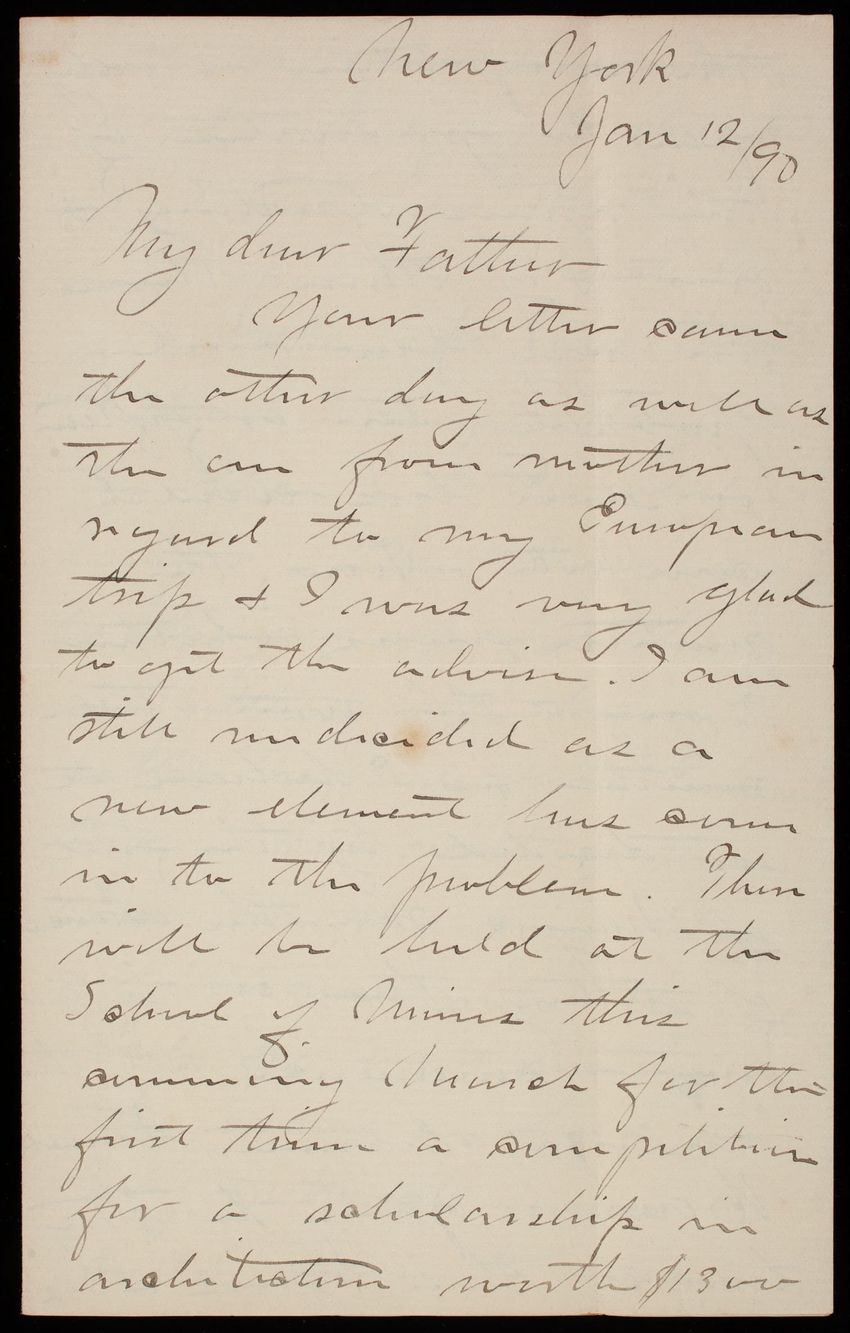 New York
Jan 12/90
My dear Father
Your letter came
the other day as well as
the one from mother in
regard to my European
trip & I was very glad
to get the advise. I am
still undecided as a
new element has come
in to the problem. There
will be held at the
School of Mines this
comming March for the
first time a competition
for a scholarship in
architecture worth $1300